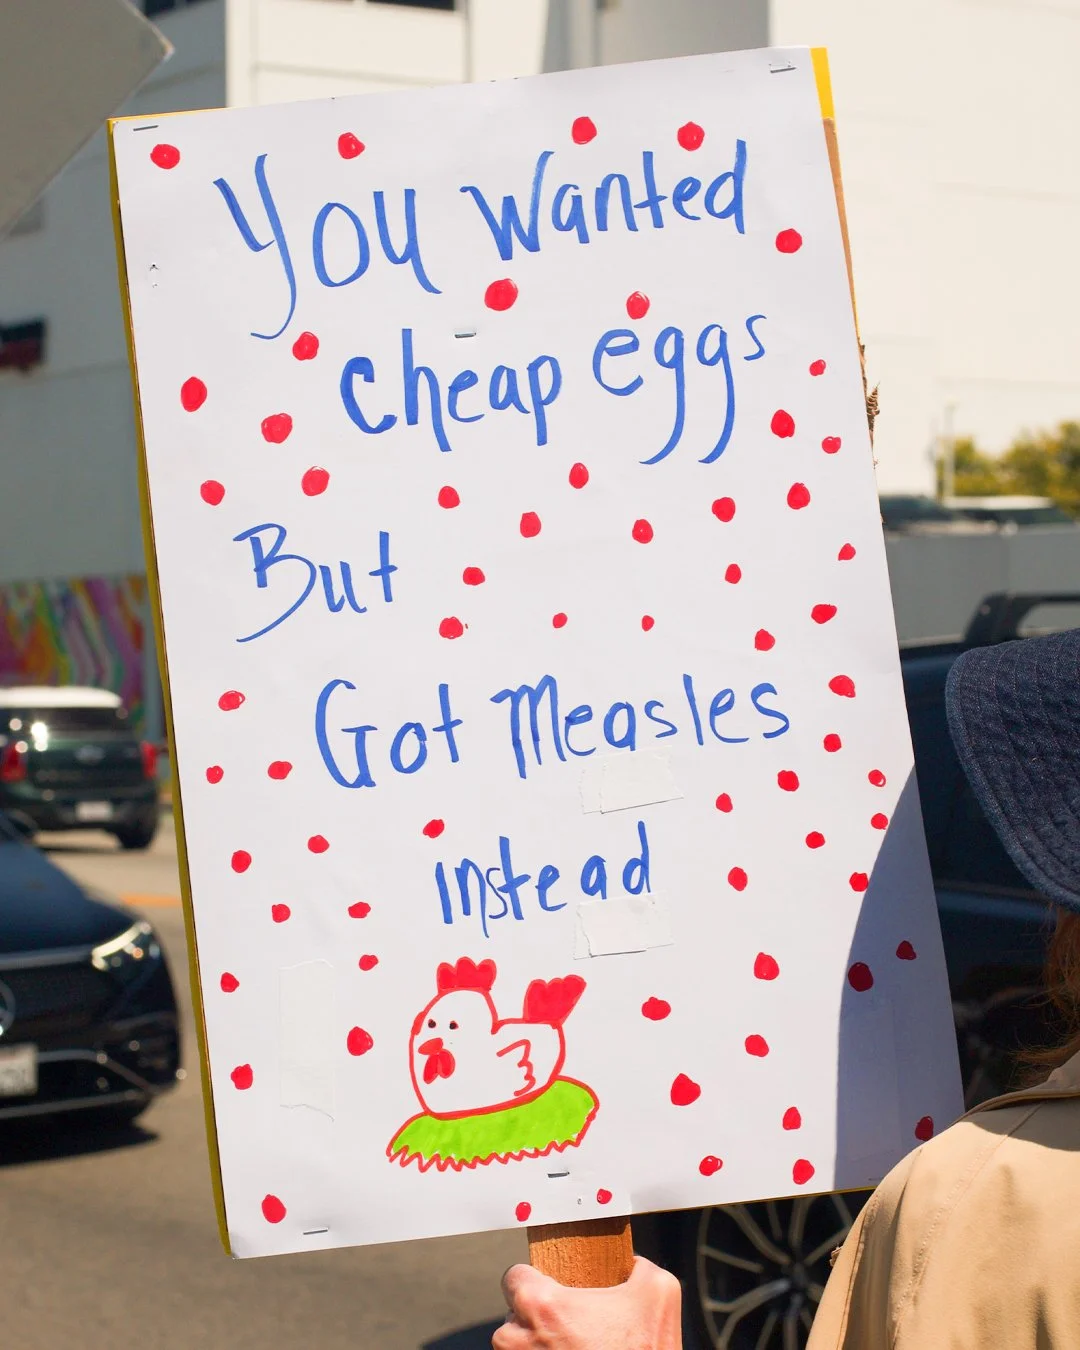 You wanted
cheap eggs
But
Got measles
instead